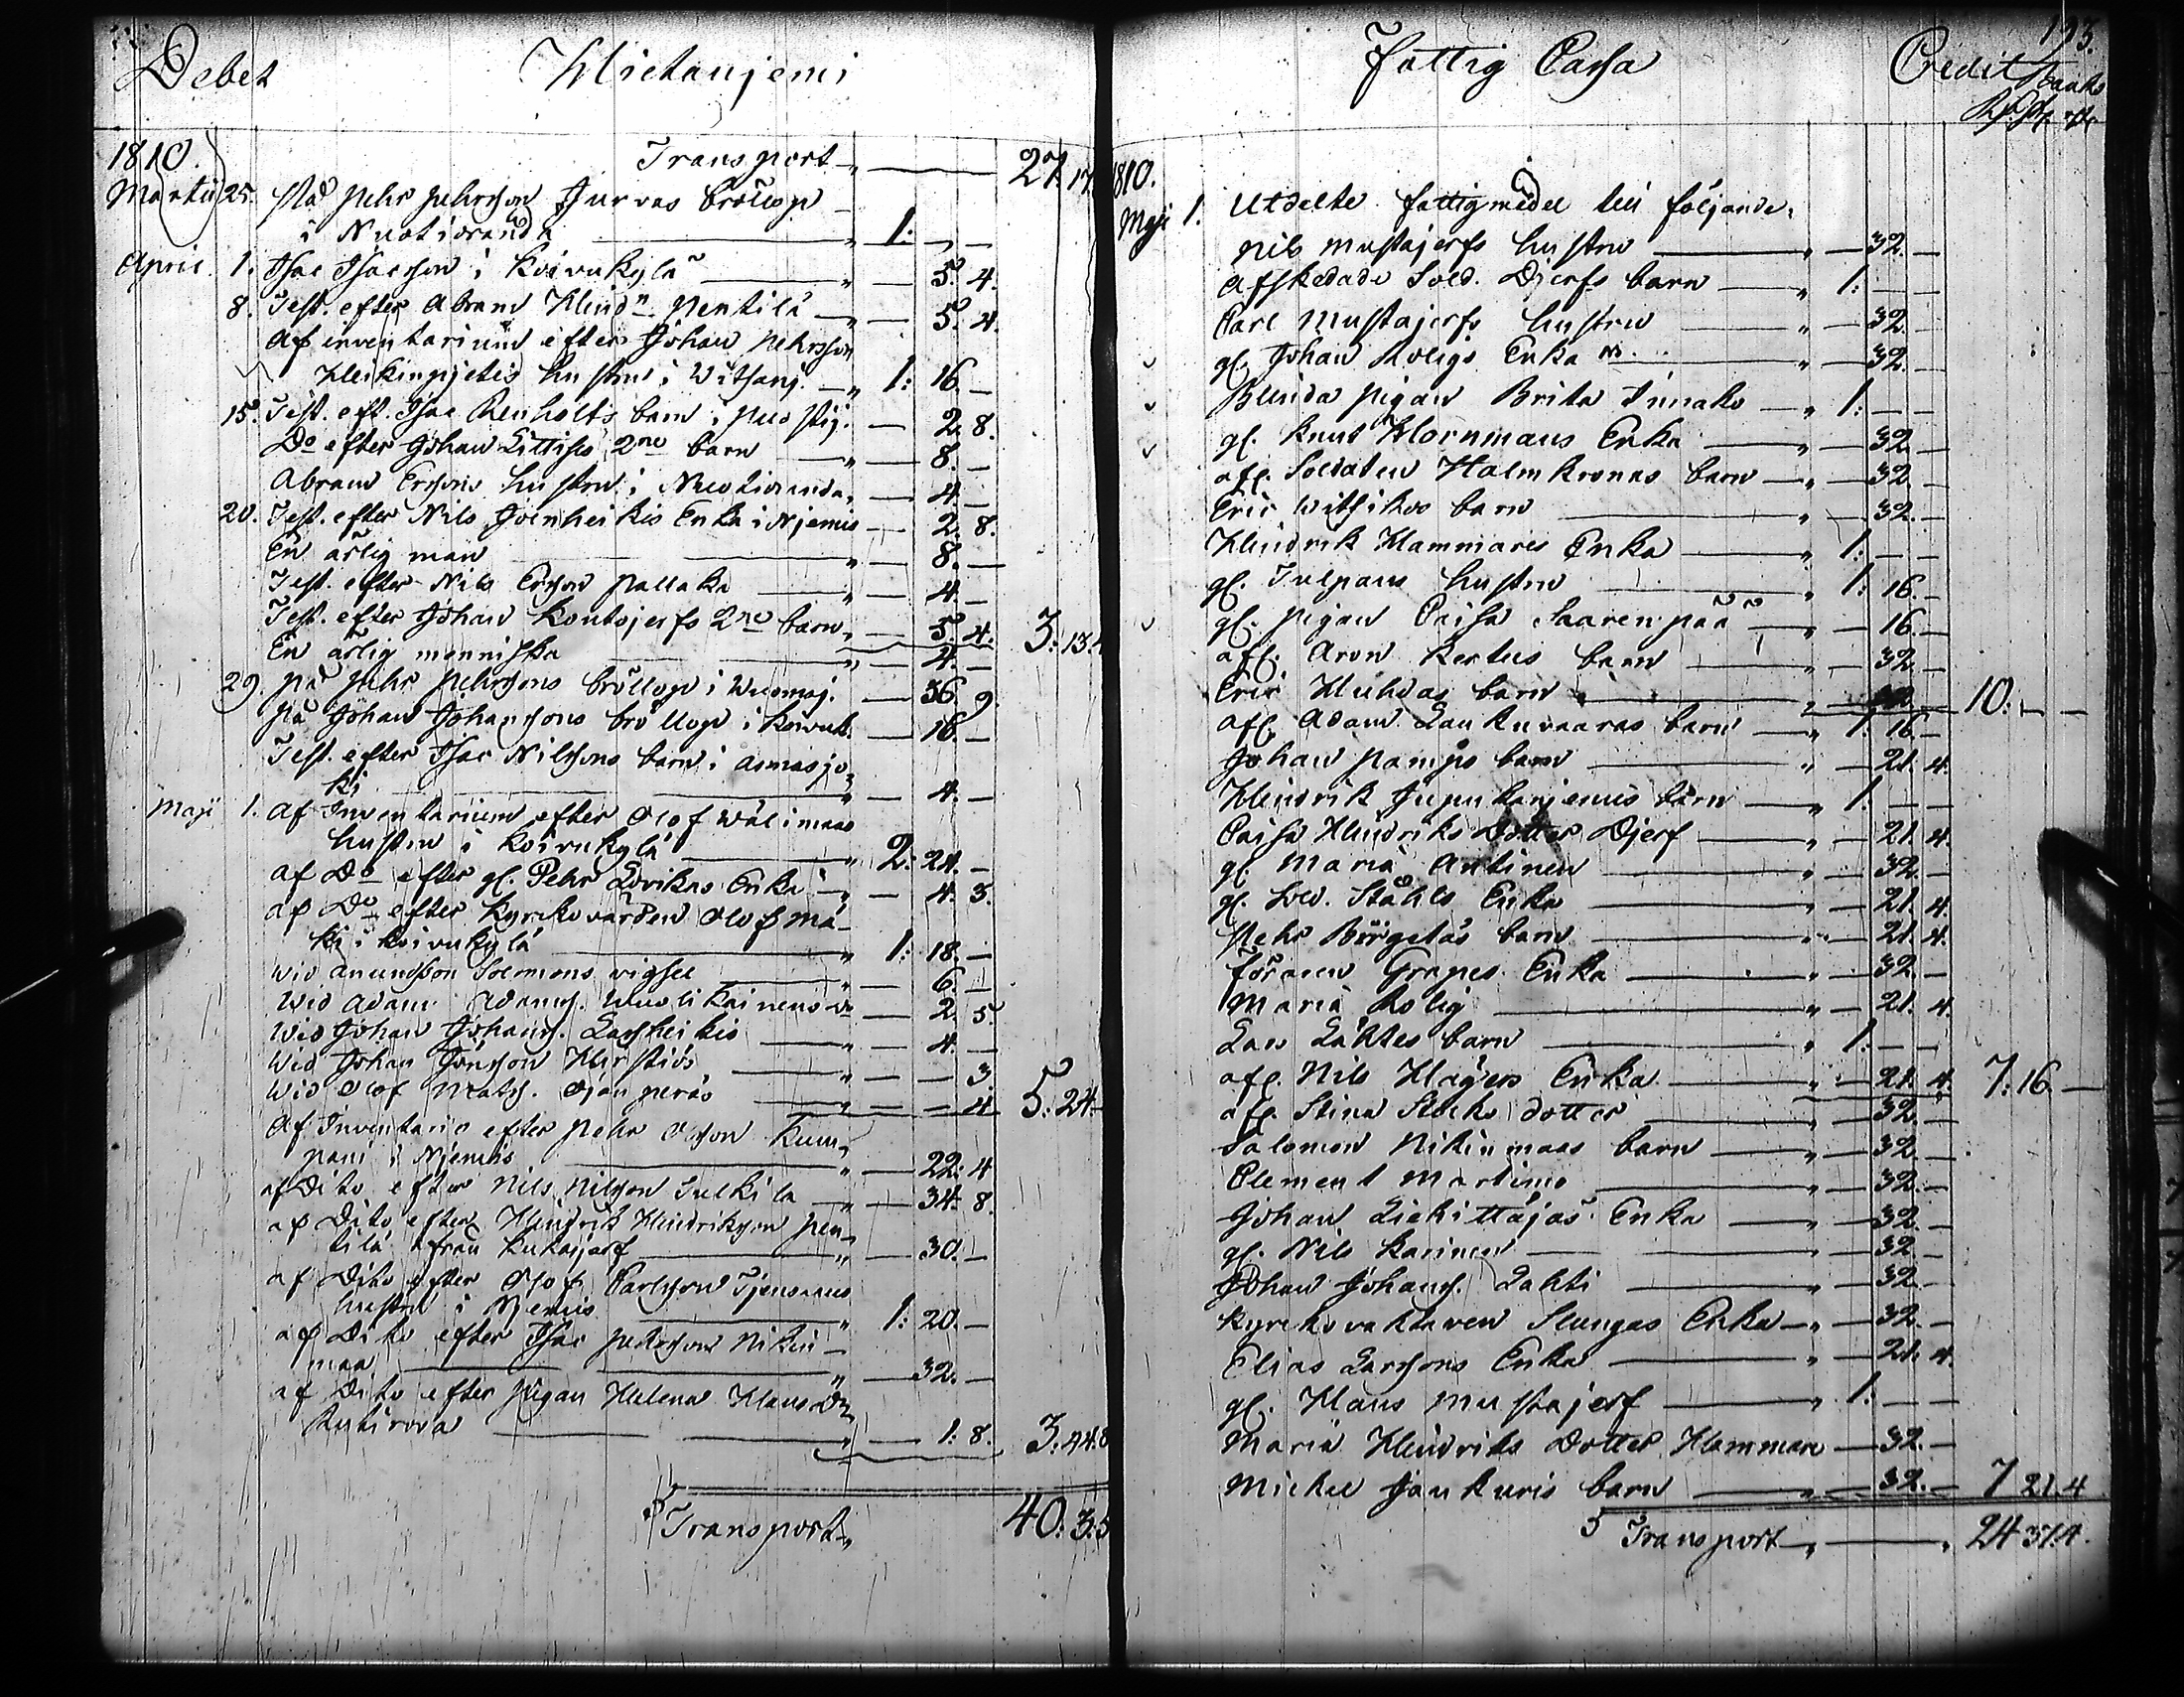 Debet Hietaniemi
1810. Transport 27: 17.
Martii 25. På Pehr Pehrsson Jurvas bröllop
i Nuotioranda 1: — —
April 1. Isac Isacsson i Koivukylä 5. 4.
8. Test. efter Abram Hendn Pentilä 5. 4.
Af inventarium efter Johan Pehrsson
Heikinpjetis hustru i Witsanj. 1: 16. —
15. Test. eft. Isac Renholts barn i 2. 8.
Do efter Johan 2ne barn 8. —
Abram Ersons hustru i Nuotioranda 4. —
20. Test. efter Nils Joenheikis Enka i Njemis 2. 8.
En ärlig man 8. —
Test. efter Nils Ersson Pallaka 4. —
Test. efter Johan Kontojerfs 2ne barn 5. 4. 3: 13.
En ärlig menniska 4. —
29. på Pehr Pehrssons bröllop i Wuomaj. 36. 9.
på Johan Johanssons bröllop i Koivuk. 16. —
Test. efter Isac Nilssons barn i Armasjo-
ki 4. —
Maji 1. Af Inventarium efter Olof Wälimaas
hustru i Koivukylä 2: 24. —
af Do efter gl. Pehr Enka 4. 3.
af Do efter Kyrkovärden Olof Mä-
ki i Koivukylä 1: 18. —
Wid Amundsson Solomons vigsel 6. —
Wid Adam Adamss. Wuolikainens do 2. 5.
Wid Johan Johanss. Lassheikis 4. —
Wid Johan Jönsson 3.
Wid Olof Matss. Ojanperäs 4. 5: 24. —
Af Inventario efter Pehr Olsson Kum-
pani i Njemis 22. 4
af Dito efter Nils Nilsson Tulkila 34. 8.
af Dito efter Hendrik Hendriksson Pen-
tilä från Kukasjärf 30. —
af Dito efter Olof Carlsson
hustru i Njemis 1: 20. —
af Dito efter Isac Pehrsson Nikin-
maa 32. —
af Dito efter Pigan Helena Hansdr
Kutirova 1. 8. 3: 44. 8
Transport 40: 3: 5
Fattig Cassa Credit 193.
Banko
1810.
Maji 1. Utdelte fattigmedel till följande.
Nils Mustajerfs hustru 32. —
Afskedade Sold. Djerfs barn 1: — —
Carl Mustajerfs hustru 32. —
gl. Johan Roligs Enka 32. —
Blinda pigan Brita 1: — —
gl. Knut Hornmans Enka 32. —
afl. Soldaten Halmkronas barn 32. —
Eric Wittikos barn 32. —
Hendrik Hammares Enka 1: — —
gl. Tulpans hustru 1: 16. —
gl. pigan Caisa Saarenpää 16. —
afl. Aron Kertus barn 32. —
Eric Huhdas barn 10: — —
afl. Adam Laukuvaaras barn 1: 16. —
Johan Pamps barn 21. 4.
Hendrik barn 1: — —
Caisa Hendriks Dotter Djerf 21. 4.
gl. Maria Antinen 32. —
gl. Sold. Ståhls Enka 21. 4.
Pehr barn 21. 4.
Föraren Grapes Enka 32. —
Maria Rolig 21. 4.
Lars Lahtes barn 1: — —
afl. Nils Hägers Enka 21. 4. 7: 16. —
afl. Stina Stocks dotter 32. —
Salomon Nikinmaas barn 32. —
Clement Martimo 32. —
Johan Liehittäjäs Enka 32. —
gl. Nils Karinen 32 —
Johan Johanss. Lahti 32. —
Kyrkovaktaren Slungas Enka 32. —
Elias Larssons Enka 21. 4.
gl. Hans Mustajerf 1: — —
Maria Hendriks Dotter Hammare 32. —
Michel Jankuris barn 32. — 7 21. 4
Transport 24 37. 4.